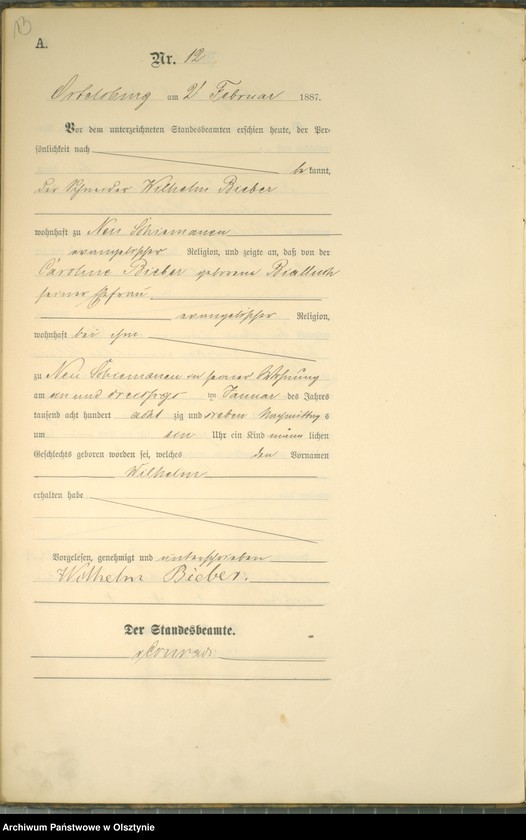 13
A.
Nr. 12
Ortelsburg am 2 Februar 1887.
Vor dem unterzeichneten Standesbeamten erschien heute, der Per-
sönlichkeit nach
be kannt,
der Schneider Wilhelm Bieber
wohnhaft zu Neu Schiemanen
evangelischer Religion, und zeigte an, daß von der
Caroline Bieber geborene
seiner Ehefrau
evangelischer Religion,
wohnhaft bei ihm
zu Neu Schiemanen in seiner Wohnung
am ein und dreißigs ten Januar des Jahres
tausend acht hundert acht zig und sieben Nachmittags
um ein Uhr ein Kind männ lichen
Geschlechts geboren worden sei, welches den Vornamen
Wilhelm
erhalten habe
Vorgelesen, genehmigt und unterschrieben
Wilhelm Bieber.
Der Standesbeamte.
Conrad
Archiwum Państwowe w Olsztynie